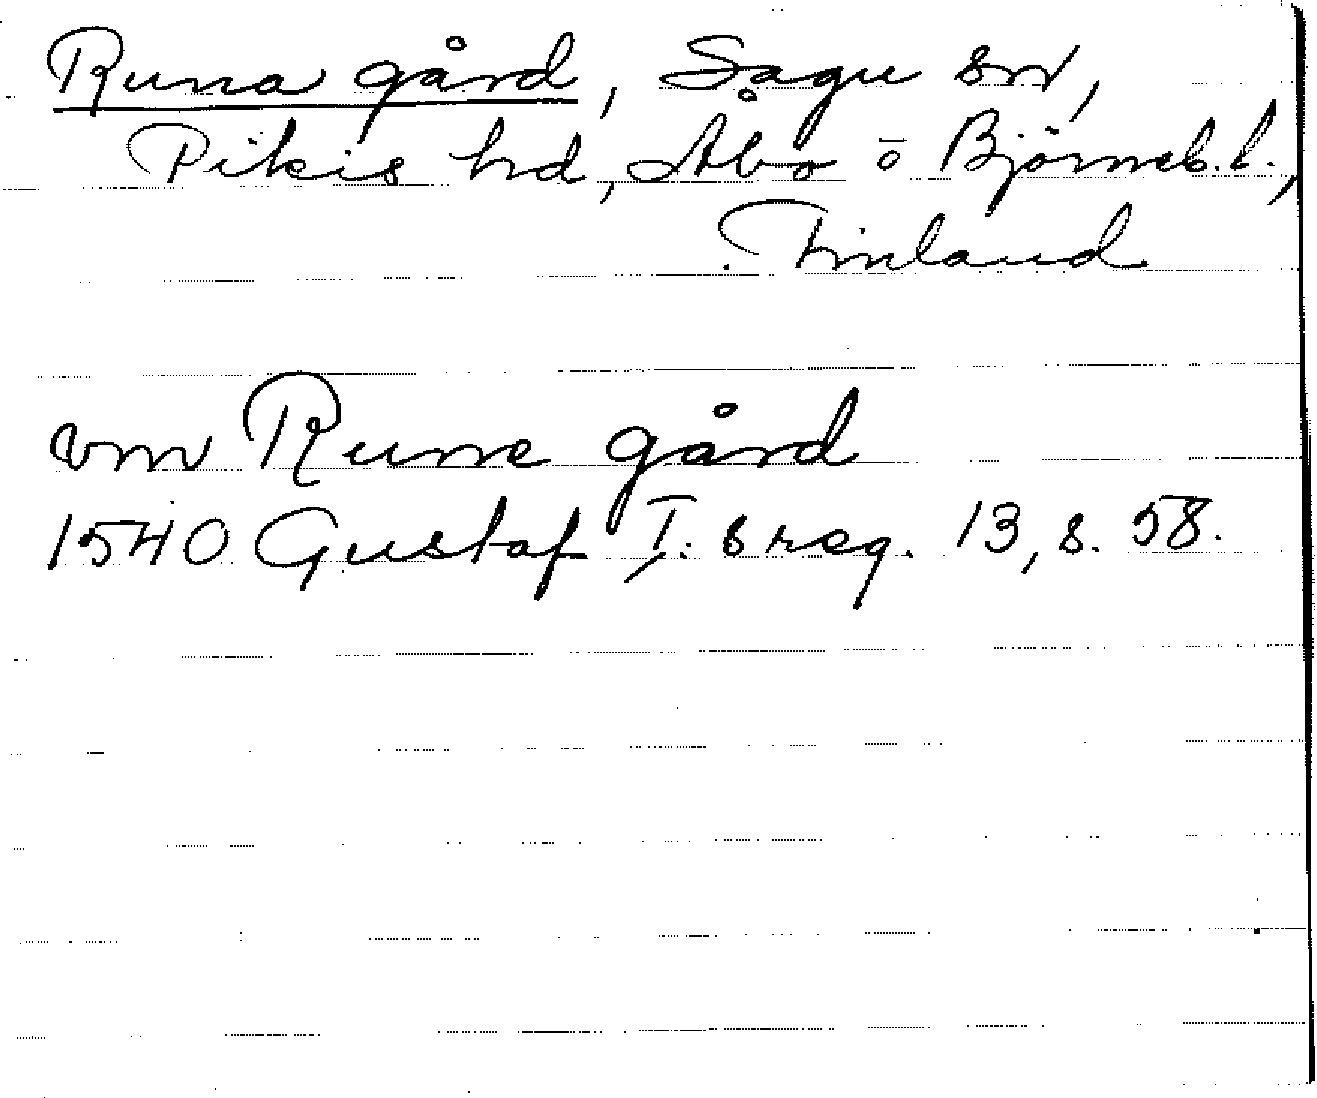 Runa gård, Sagu sn,
Pikis hd, Åbo o Björneb. l.,
Finland
om Rune gård
1540 Gustaf I:s reg. 13, s. 58.